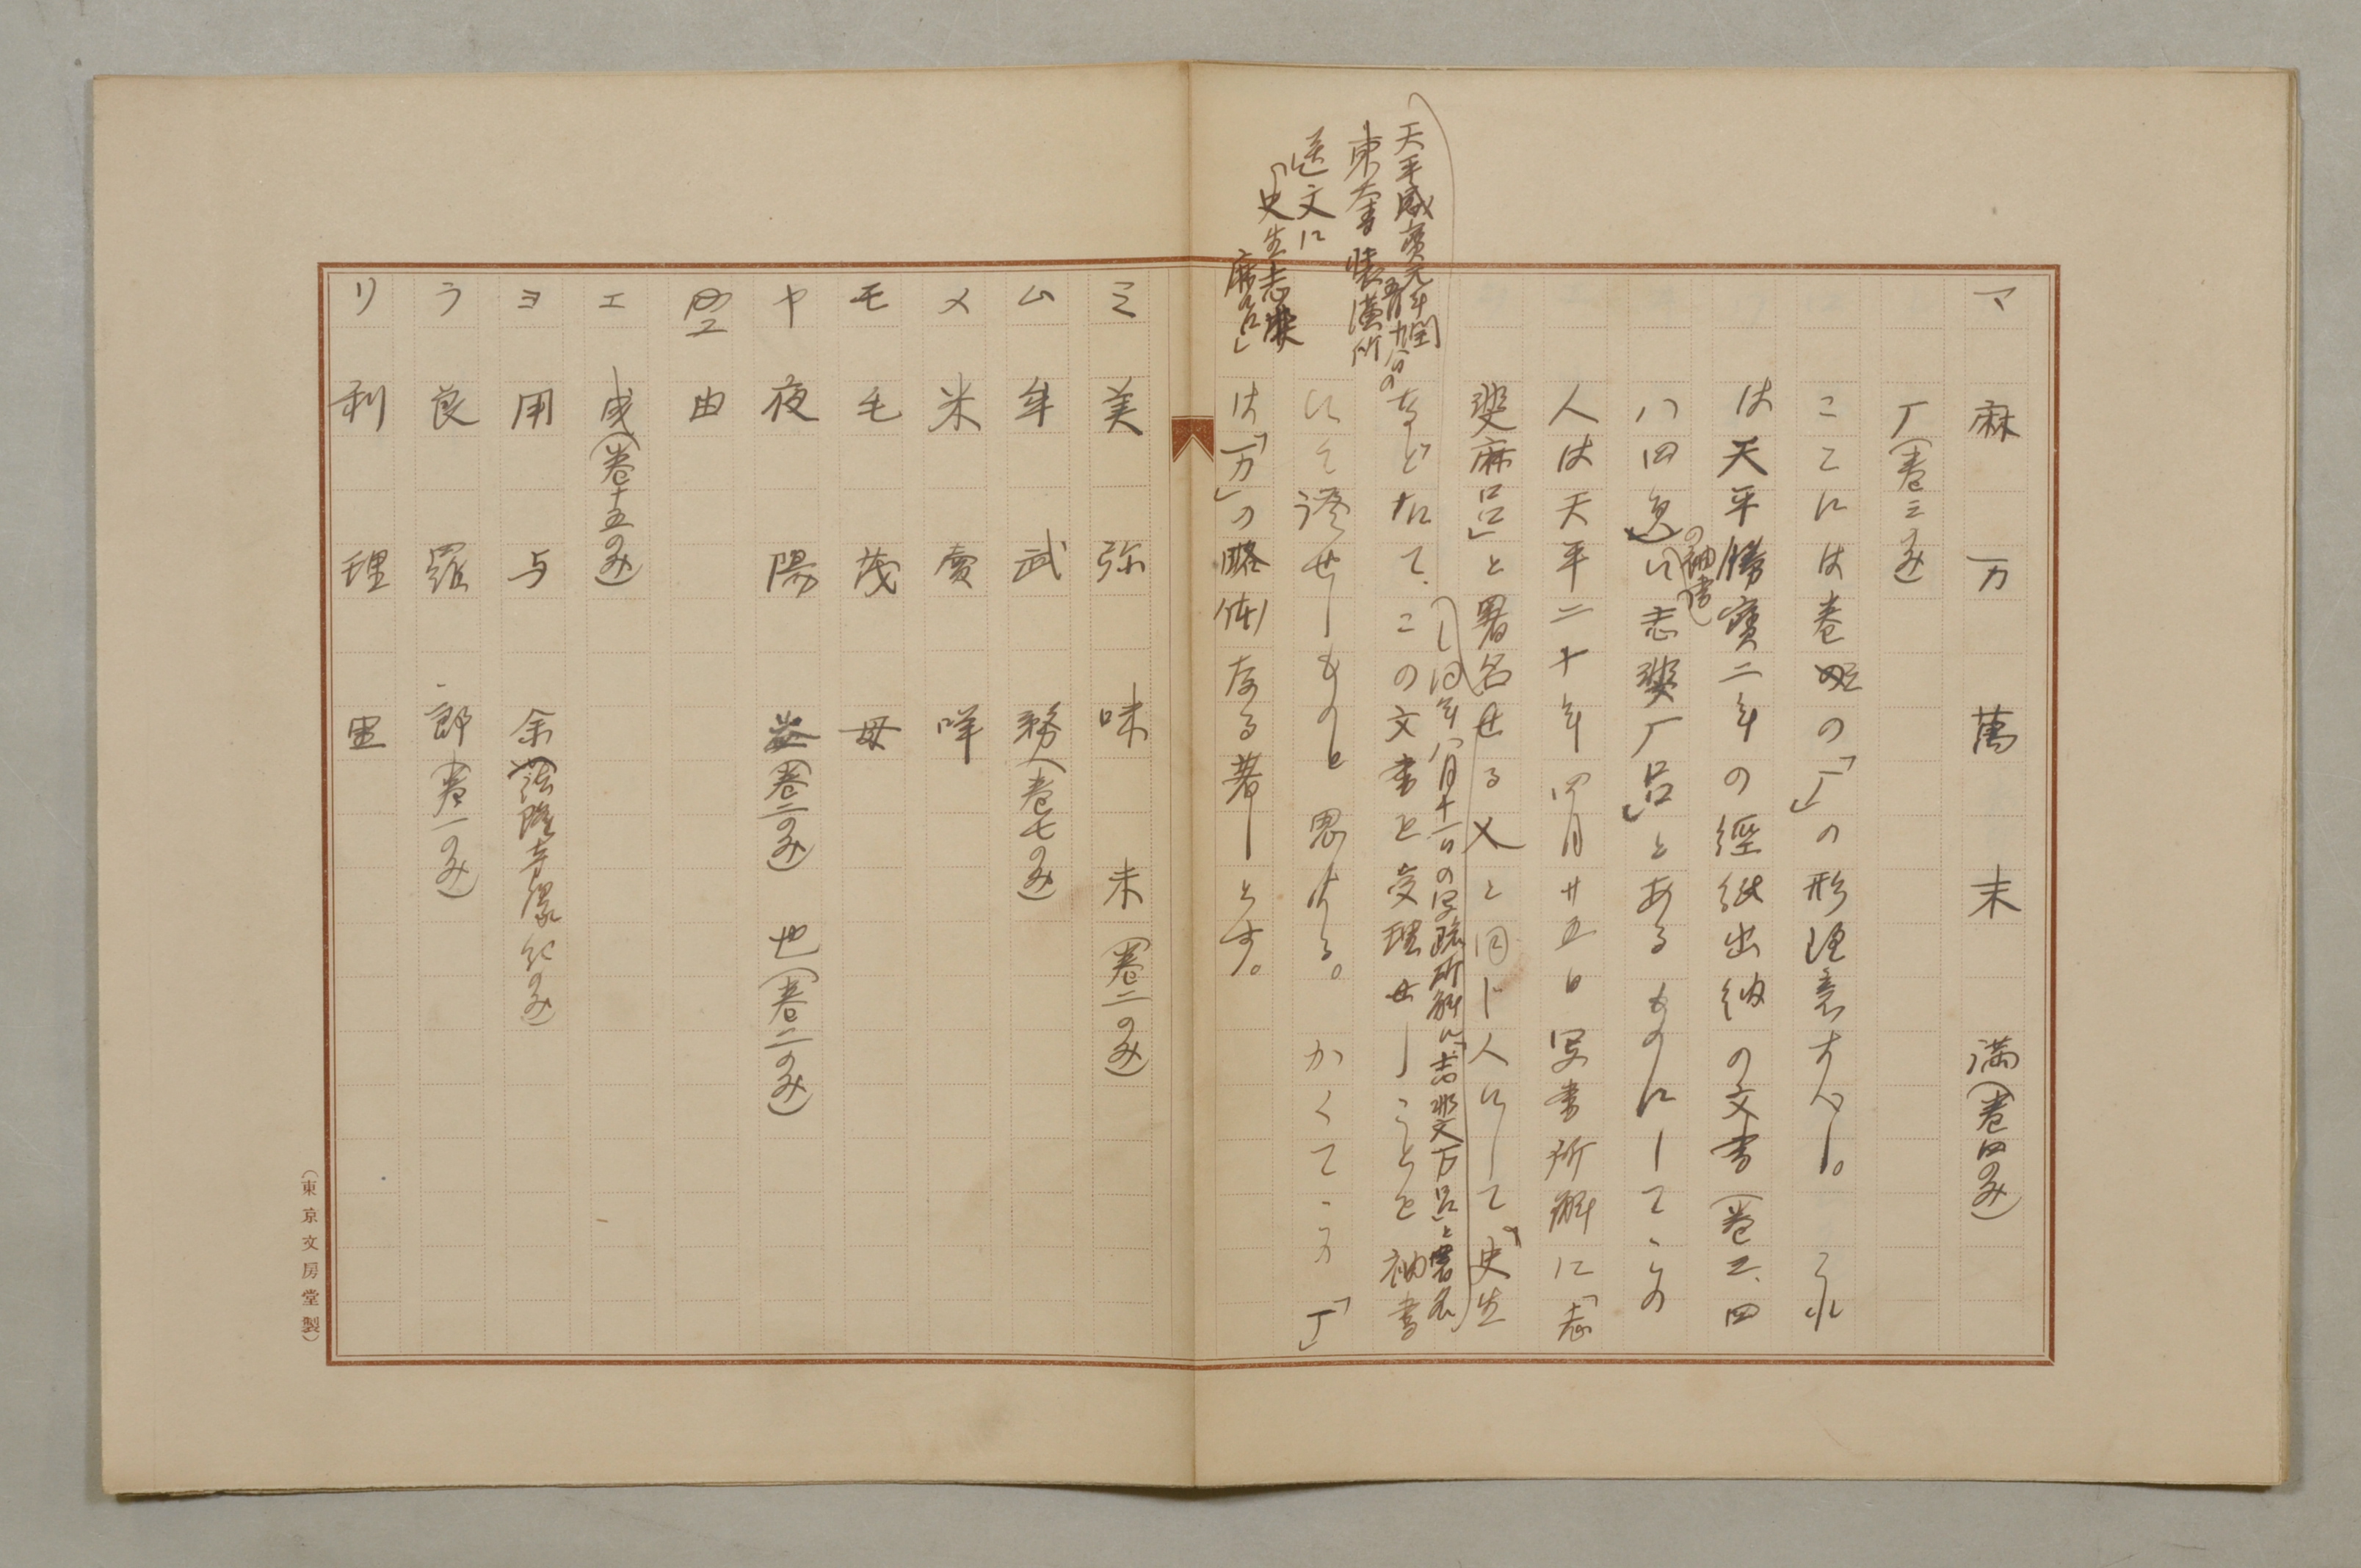 マ 麻 万 萬 末 満(卷四のみ)
丁(卷三のみ)
ここには卷の「丁」の形注意すべし。これ
は天平勝寶二年の經紙出納の文書(卷三、四
八四頁)の袖書に「志斐丁呂」とあるものにしてこの
人は天平二十年四月廿五日写書所解に「志
斐麻呂」と署名せる
し同年八月十一日の写疏所解に「志斐万呂」と署名
人と同じ人にして、「史生
天平感寶元年閏五月九日の
東大寺装潢所
送文に
「史生志斐
麻呂」
などたにて、この文書を受理せしことを袖書
にて證せしものと思はる。かくてこの「丁」
は「万」の略体なる著しとす。
ミ 美 弥 味 未(卷二のみ)
ム 牟 武 務(卷七のみ)
メ 米 賣 咩
モ 毛 茂 母
ヤ 夜 陽 (卷二のみ) 也(卷二のみ)
ユ 由
エ 曳(卷十五のみ)
ヨ 用 与 余(法隆寺縁紀のみ)
ラ 良 羅 郎(卷一のみ)
リ 利 理 里
(東京文房堂製)